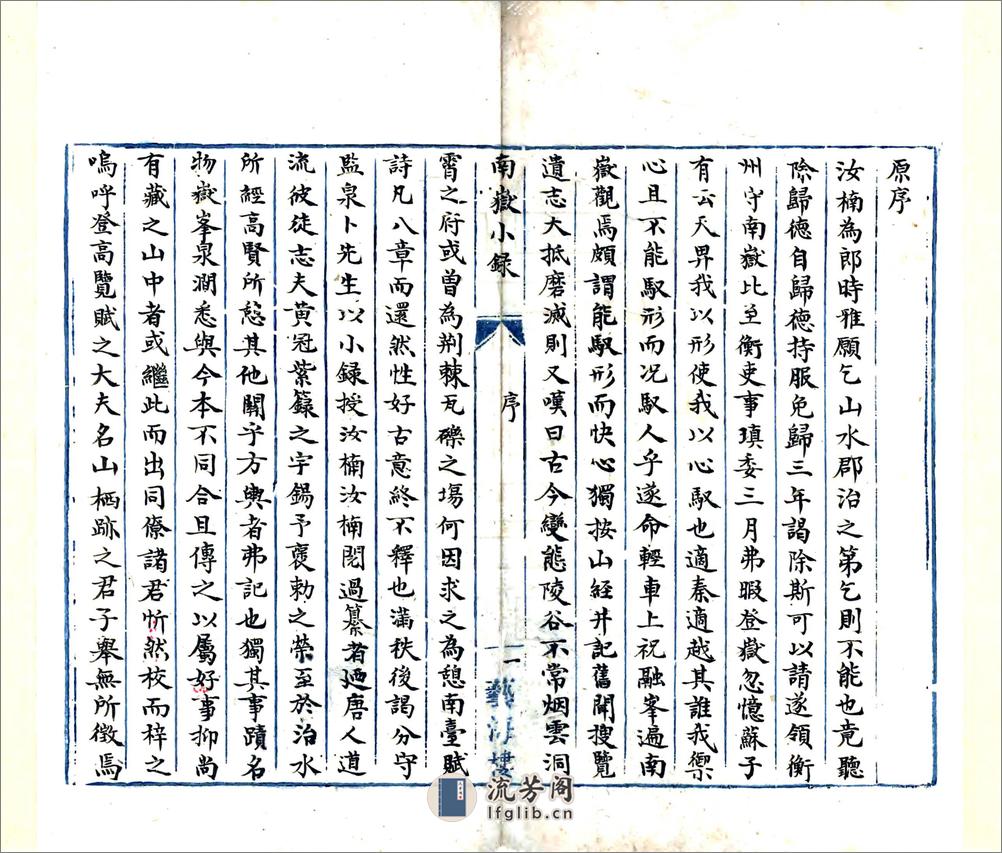 原序
汝楠為郎時雅願乞山水郡治之第乞則不能也竟聽
除歸德自歸德持服免歸三年謁除斯可以請遂領衡
州守南嶽比至衡吏事瑱委三月弗暇登嶽忽憶蘇子
有云天畀我以形使我以心馭也適秦適越其誰我禦
心且不能馭形而况馭人乎遂命輕車上祝融峯遍南
嶽觀焉頗謂能馭形而快心獨按山經井記舊聞搜覽
遺志大抵磨滅則又嘆曰古今變態陵谷不常烟雲洞
南嶽小録
序
一
藝海樓
霄之府或曽為荆棘瓦礫之塲何因求之為憩南臺賦
詩凡八章而還然性好古意終不釋也滿秩後謁分守
監泉卜先生以小録授汝楠汝楠閱過纂者廼唐人道
流彼徒志夫黄冠紫籙之宇錫予褒勅之榮至於治水
所經高賢所憩其他關乎方輿者弗記也獨其事蹟名
物嶽峯泉澗悉與今本不同合且傳之以屬好事抑尚
有藏之山中者或繼此而出同僚諸君忻然校而梓之
嗚呼登高覽賦之大夫名山栖跡之君子舉無所徵焉
流芳阁
lfglib.cn